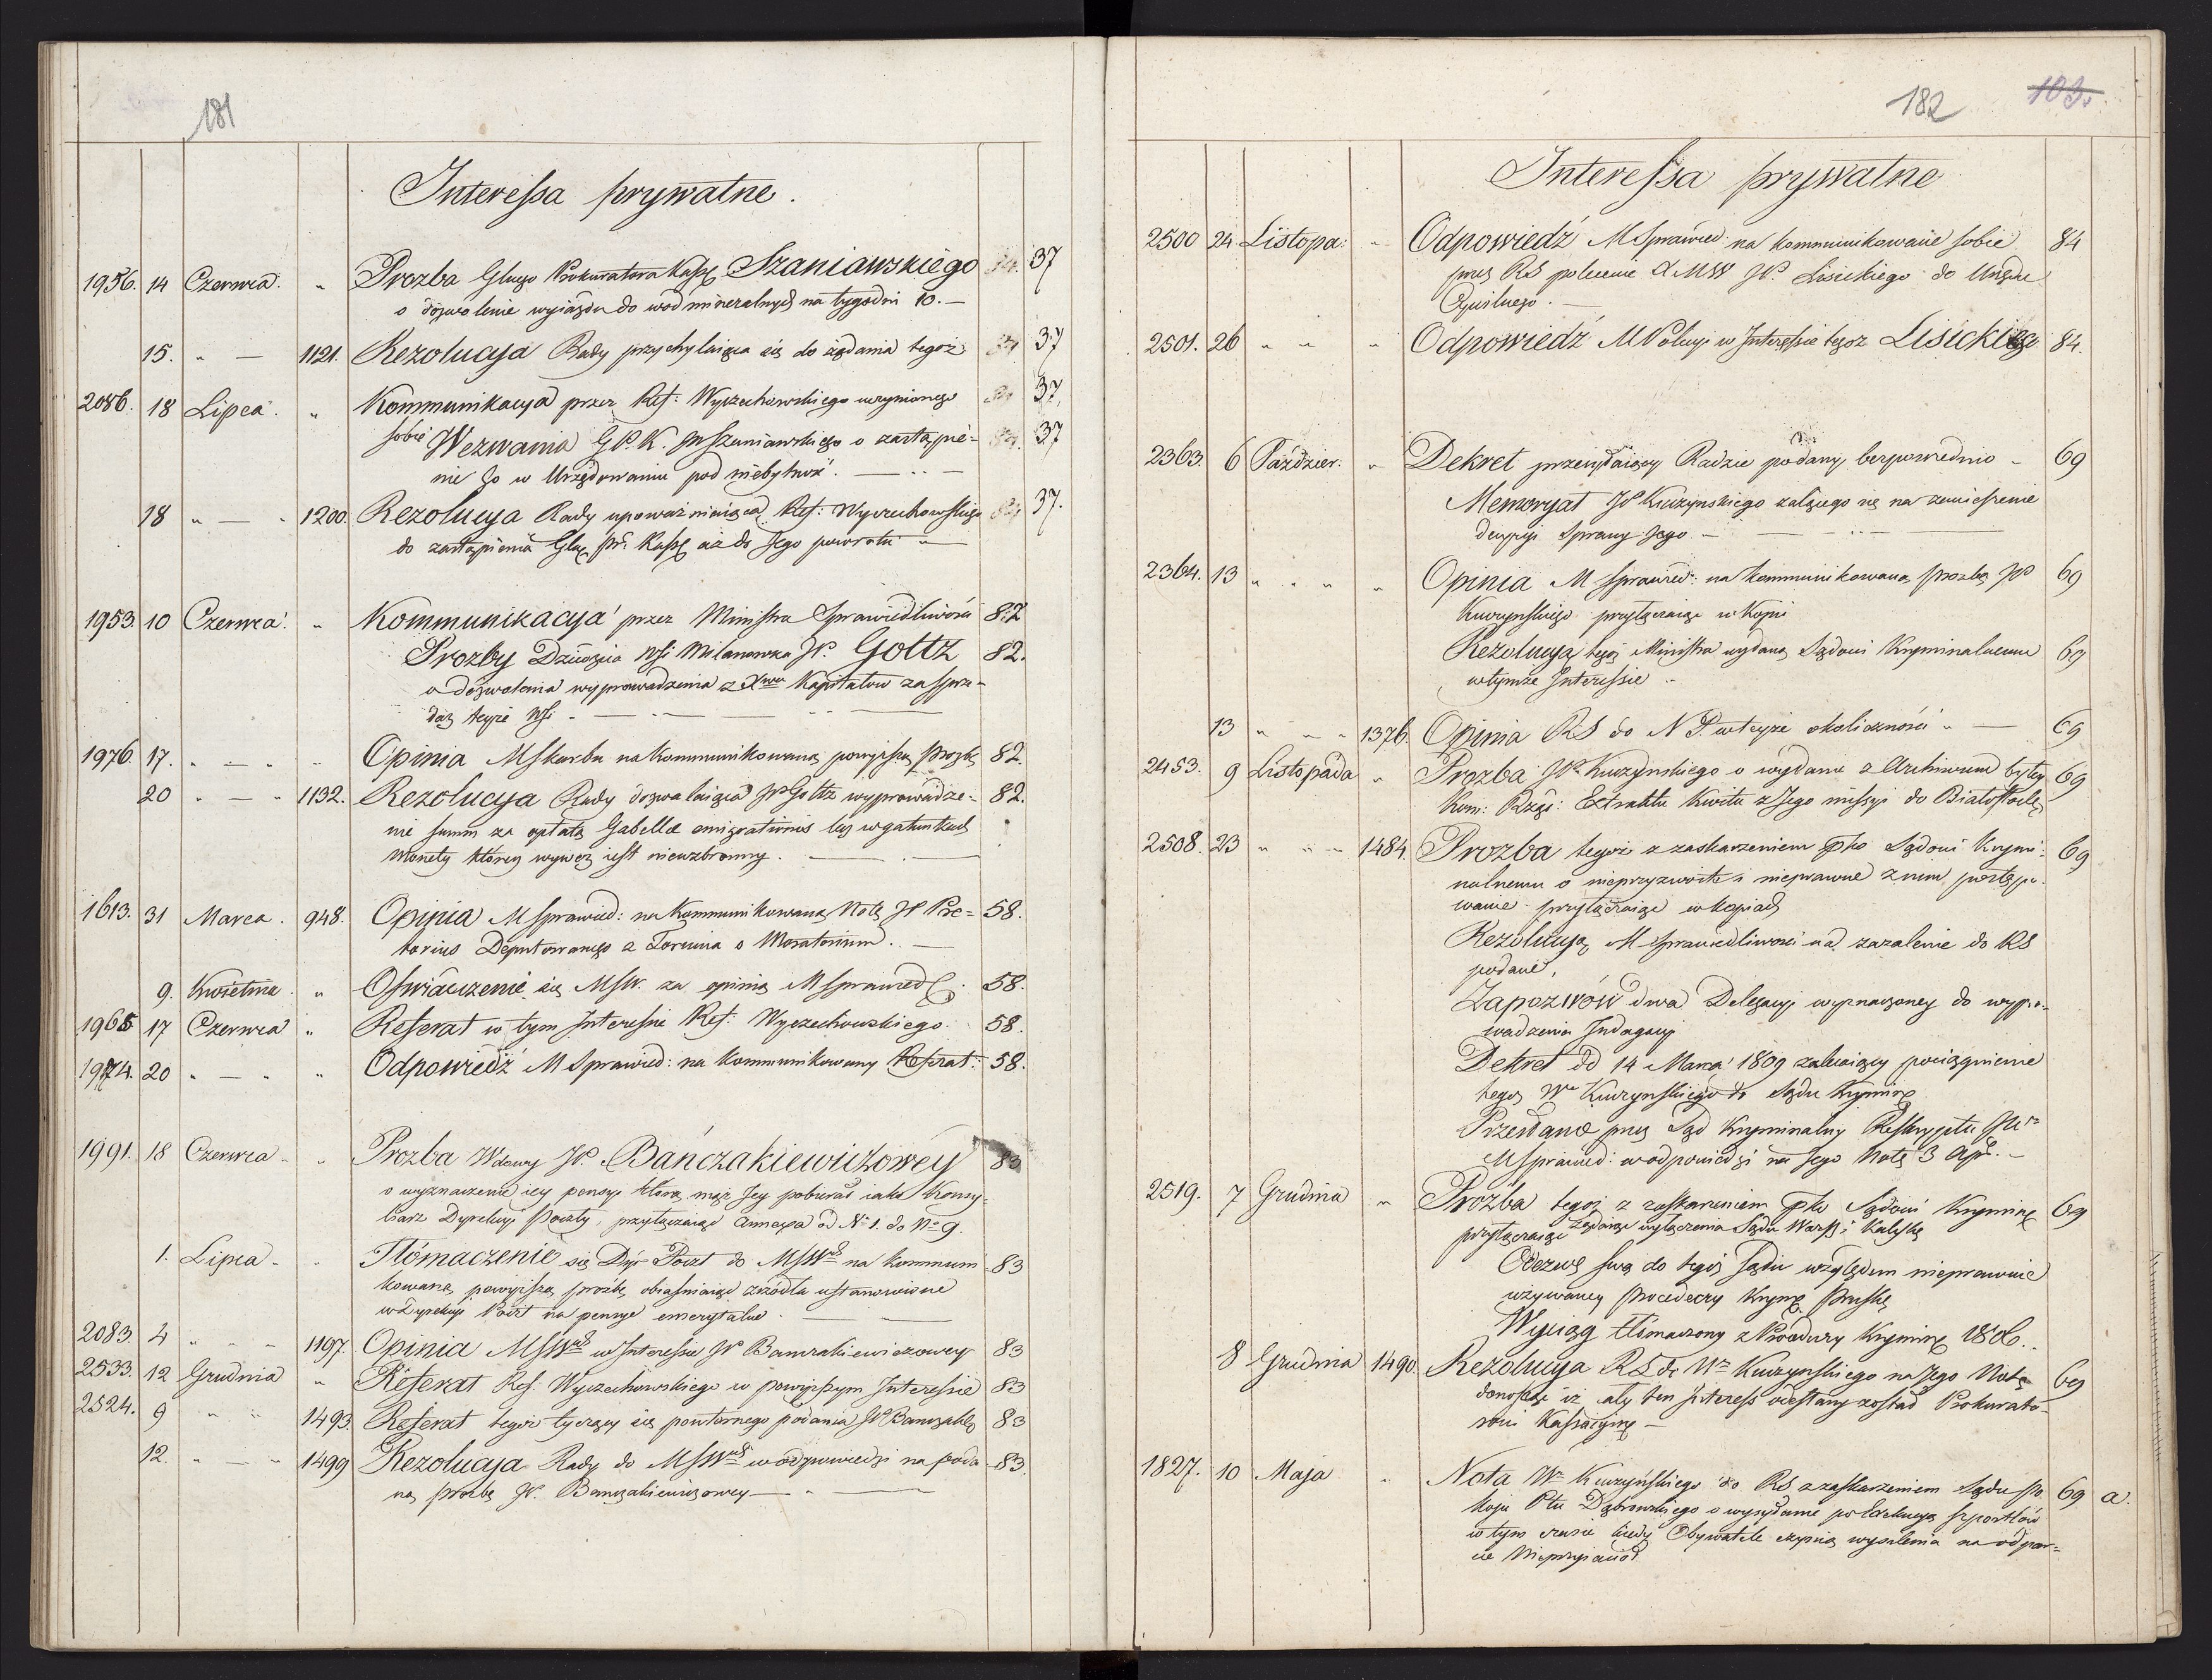 181
Interessa prywatne.
1956. 14 Czerwca. " Prozba Głngo Prokuratora Kass Szaniawskiego 37
o dozwolenie wyiazdu do wod mineralnych na tygodni 10. —
15. " — 1121. Rezolucya Rady przychylaiąca się do żądania tegoż 37
2086. 18 Lipca. " Kommunikacya przez Ref: Wyczechowskiego uczynionego 37
sobie Wezwania GPK. JP Szaniawskiego o zastąpie= 37
nie Go w Urzędowaniu pod niebytność. —
18 " — " 1200. Rezolucya Rady upoważniaiąca Ref: Wyczechowskiego 37.
do zastąpienia Gła Pr. Kass aż do Jego powrotu " —
1953. 10 Czerwca. " Kommunikacya przez Ministra Sprawiedliwości 82
Prozby Dziedzica Wsi Milanowka JP. Goltz 82.
o dozwolenia wyprowadzenia z Xwa Kapitałow za sprze=
daz teyże Wsi - —
1976. 17. " — " " Opinia MSkarbu na Kommunikowaną powyższą prozbę 82.
20 " — " 1132. Rezolucya Rady dozwalaiąca JP Goltz wyprowadze= 82.
nie summ za opłatą Gabellae emigrationis lecz w gatunkach
monety ktorey wywoz iest niewzbronny. —
1613. 31 Marca. 948. Opinia MSprawied: na Kommunikowaną Notę JP Pre= 58.
torius Deputowanego z Torunia o Moratorium. —
9. Kwietnia. " Oświadczenie się MSW. za opinią MSprawiedl. 58.
1965 17 Czerwca " Referat w tym Interessie Ref. Wyczechowskiego. 58.
1974. 20 " — " " Odpowiedź MSprawied: na Kommunikowany Referat: 58.
1991. 18 Czerwca - " Prozba Wdowy JP. Bańczakiewiczowey 83
o wyznaczenie iey pensyi ktorą mąż Jey pobierał iako Konsy-
liarz Dyrekcyi Poczty, przyłączaiąc Annexa od No 1. do No 9.
1. Lipca - " Tłómaczenie się Dyr Poczt do MSW na Kommuni- 83
kowaną powyższą prośbę, obiaśniaiąc zrzódła ustanowione
w Dyrekcyi Poczt na pensye emerytalne. —
2083 4 " - - 1197. Opinia MSW w Interessie JP Banczakiewiczowey 83
2533. 12 Grudnia " Referat Ref. Wyczechowskiego w powyższym Interessie 83
2524. 9 " " 1493. Referat tegoż tyczący się powtornego podania JP Banczakie 83
12. " — " 1499 Rezolucya Rady do MSW w odpowiedzi na poda- 83.
ną prozbę JP. Banczakiewiczowey — " —
182 103.
Interessa prywatne
2500 24 Listopa: " Odpowiedź MSprawied na kommunikowane sobie 84
przez RS polecenie MSW JP. Lisickiego do Urzędu
Cywilnego. —
2501. 26 " " " Odpowiedź MPolicyi w Interessie tegoz Lisickiego 84.
2363. 6 Paździer: " Dekret przesyłaiący Radzie podany bezposrednio - 69
Memoryał JP Kuczynskiego żalącego się na zawieszenie
decyzyi Sprawy Jego — — " —
2364. 13 " " " " Opinia MSprawied: na kommunikowaną prozbę JP 69
Kuczynskiego przyłączaiąc w Kopii
Rezolucyą tegoż Ministra wydaną Sądowi Kryminalnemu 69
w tymże Interessie "
13 " — " 1376. Opinia RS do NP w teyże okoliczności " — 69
2453. 9 Listopada " Prozba JP Kuczynskiego o wydanie z Archiwum byłey 69
Kom: Rządz: Extraktu Kwitu z Jego missyi do Białostocke
2508. 23 " " — 1484. Prozba tegoż z zaskarzeniem pko Sądowi Krymi= 69
nalnemu o nieprzyzwoite i nieprawne z nim postępo-
wanie przyłączaiąc w kopiach
Rezolucyą MSprawiedliwości na zażalenie do RS
podane,
Zapozwów dwa Delegacyi wyznaczoney do wypro-
wadzenia Indagacyi
Dekret dd 14 Marca 1809 zalecaiący pociągnienie
tegoz Wo Kuczynskiego do Sądu Krymin
Przesłane przez Sąd Kryminalny Reskryptu JW
MSprawied: w odpowiedzi na Jego Notę 3 Apr. —
2519. 7 Grudnia " Prozba tegoż z zaskarzeniem pko Sądowi Krymin 69
przyłączaiąc żądaiąc wyłączenia Sądu Warsz i Kalisk
Odezwę swą do tegoż Sądu względem nieprawnie
używaney Procedury Krym. Pruskie
Wyciąg tłomaczony z Procedury Krymin 1806.
8 Grudnia 1490. Rezolucya RS do Wo Kuczynskiego na Jego Notę 69
donosząc iż cały ten Interess odesłany został Prokurato-
rowi Kassacyine —
1827. 10 Maja " Nota Wo Kuczyńskiego do RS z zaskarzeniem Sądu Po 69 a.
koju Ptu Dąbrowskiego o wysyłanie po Exekucyą sportlów
w tym czasie kiedy Obywatele czynią wysilenia na odpar=
cie Nieprzyiaciół